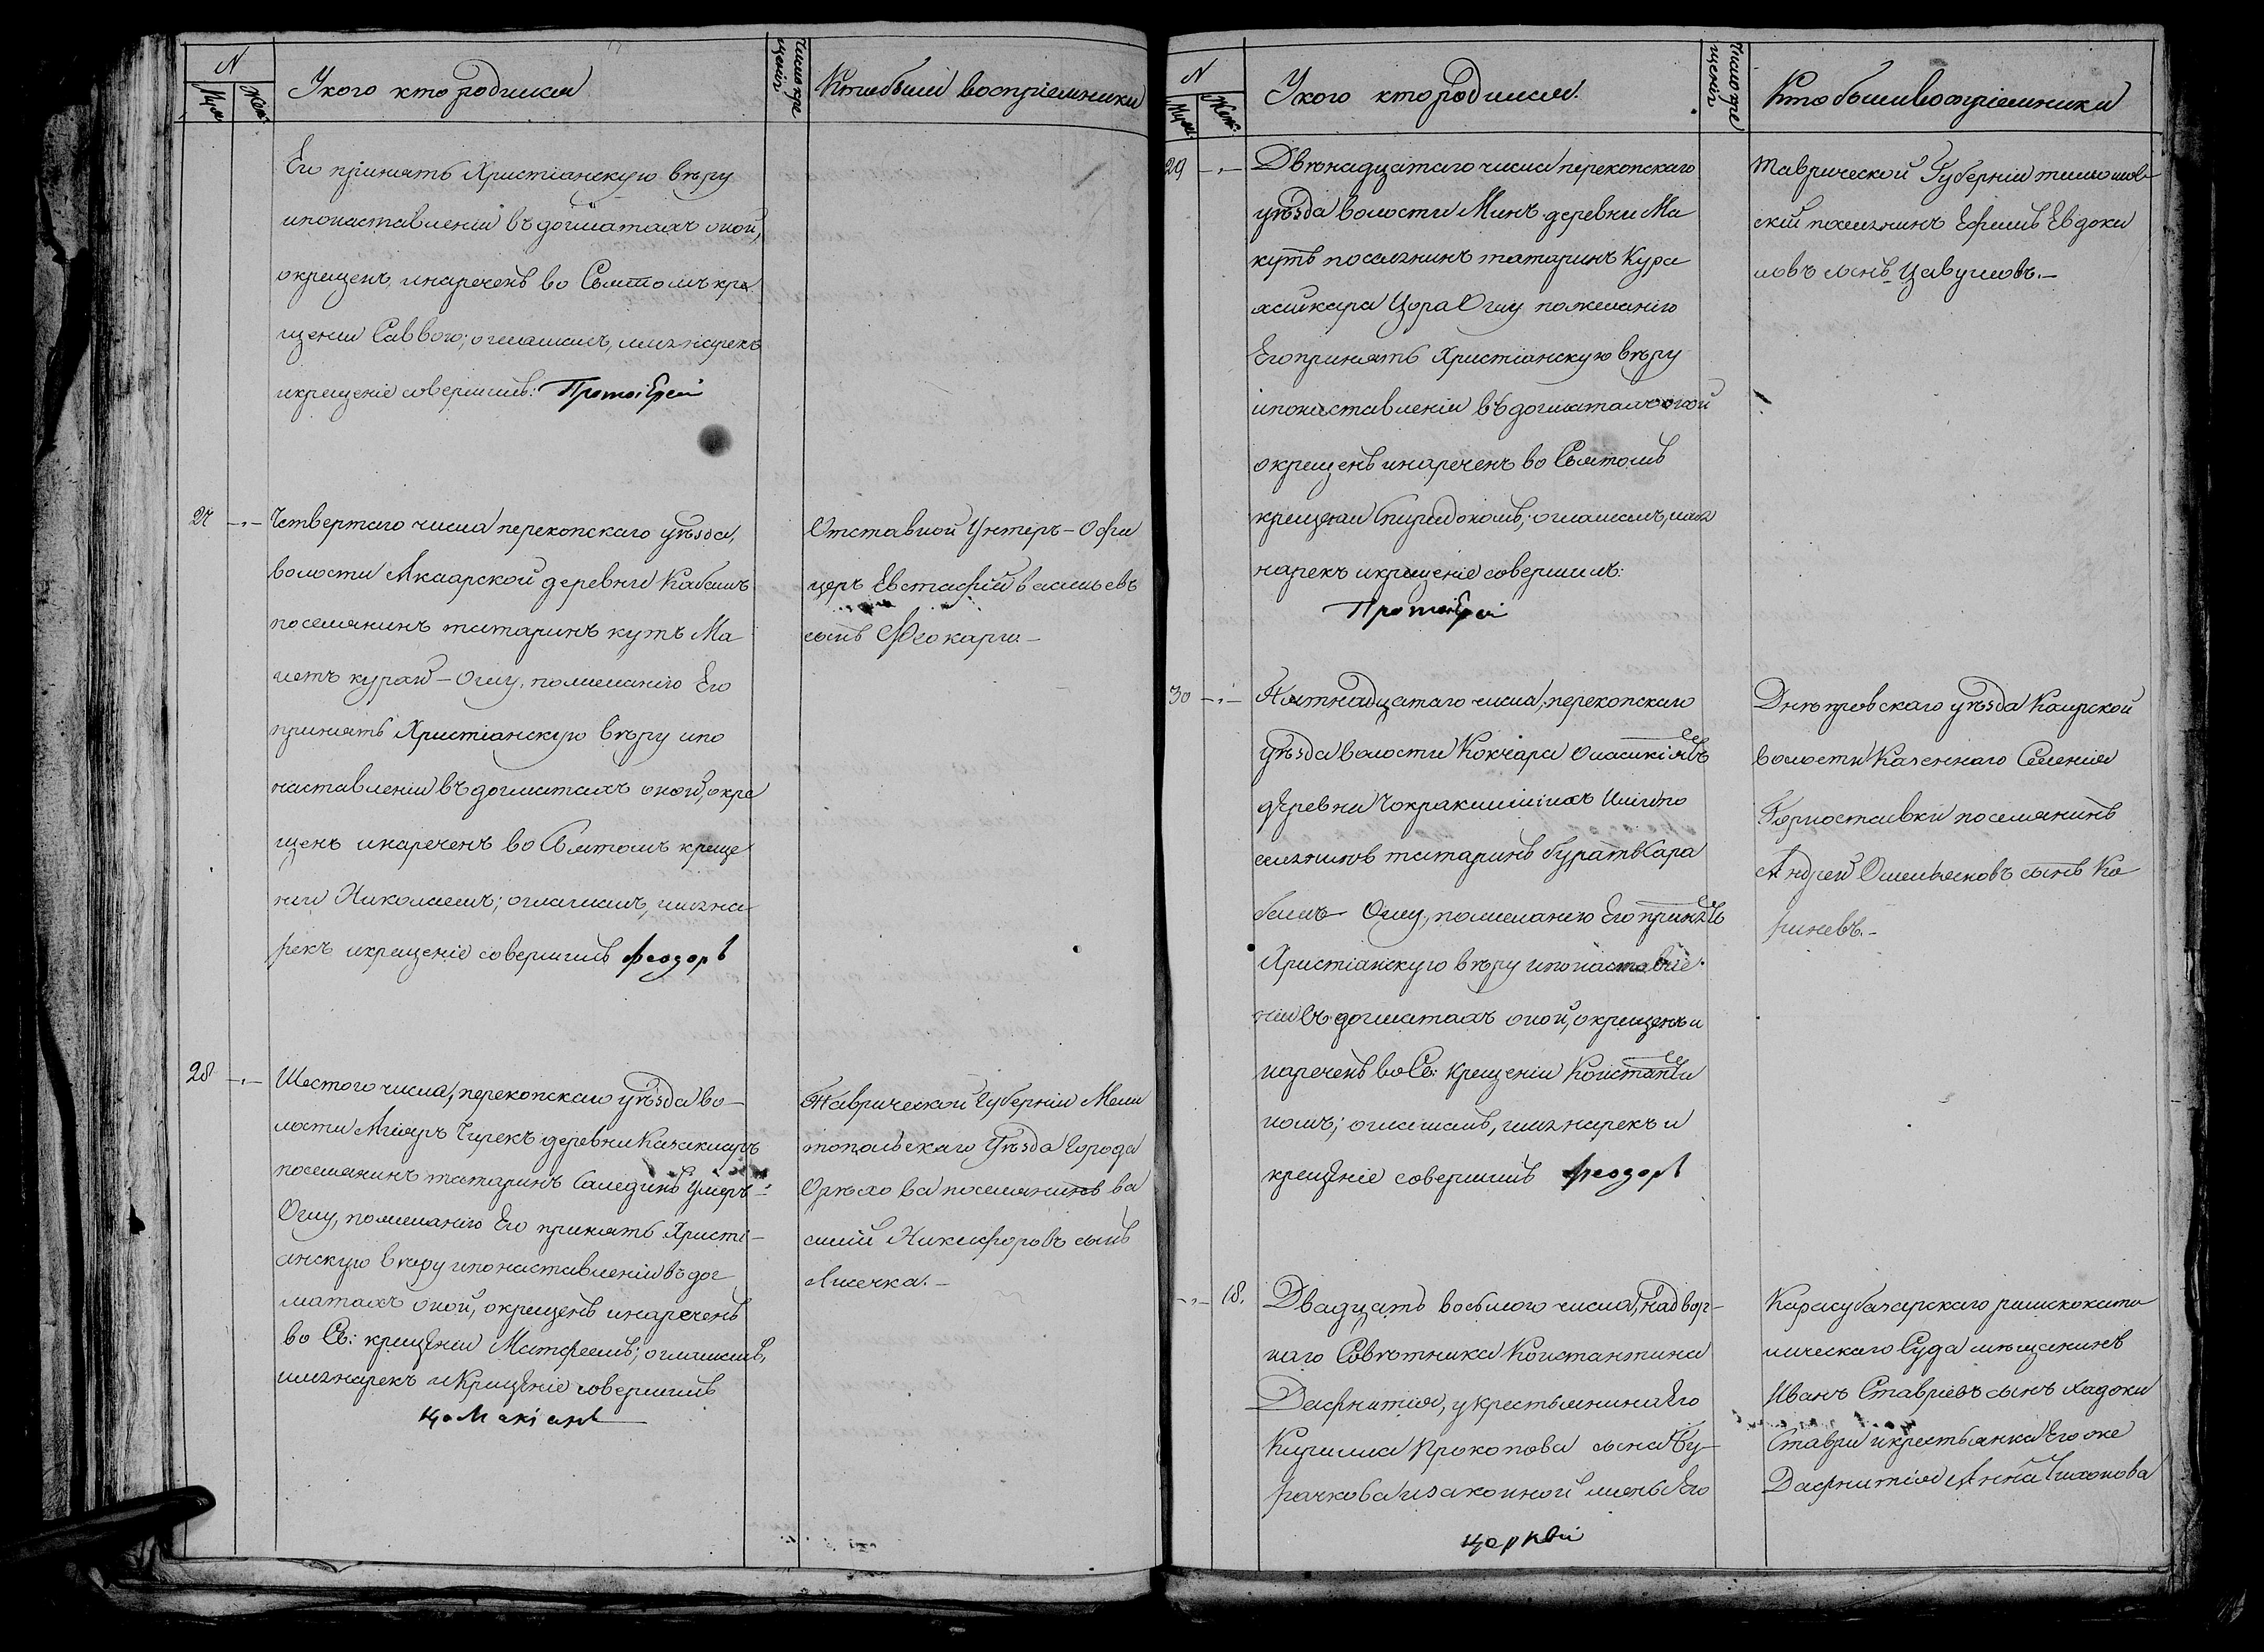 N
Муж.
Жен.
У кого кто родился
Число кре
щенія
Кто были воспріемники
Его принять Христіанскую вѣру
и по наставленіи въ догматахъ оной,
окрещенъ, и нареченъ во Святомъ кре
щеніи Саввою; оглашалъ, имя нарекъ
и крещеніе совершилъ: Протоіерей
27
Четвертаго числа перекопскаго уѣзда,
волости деревни
поселянинъ татаринъ кутъ Ма
метъ курай-Оглу, по желанію Его
принять Христіанскую вѣру и по
наставленіи въ догматахъ оной, окре
щенъ и нареченъ во Святомъ креще
ніи Николаемъ; оглашалъ, имя на
рекъ и крещеніе совершилъ феодоръ
Отставной Унтеръ-Офи
церъ Евстафій васильевъ
сынъ
28
Шестого числа, перекопскаго уѣзда во-
лости деревни
поселянинъ татаринъ Саледин Умеръ-
Оглу, по желанію Его принять Христі-
анскую вѣру и по наставленіи въ дог
матахъ оной, окрещенъ и нареченъ
во Св: крещеніи Матфеемъ; оглашалъ,
имя нарекъ и Крещеніе совершилъ
Таврической Губерніи Мели
топольскаго Уѣзда города
Орѣхова поселянинъ ва
силій Никифоровъ сынъ
Лисечка.-
N
Муж.
Жен.
У кого кто родился.
Число кре
щенія
Кто были воспріемники
29
Двѣнадцатаго числа перекопскаго
уѣзда волости Минъ деревни Ма
кутъ поселянинъ татаринъ Кура
Оглу по желанію
Его принять Христіанскую вѣру
и по наставленіи въ догматахъ оной
окрещенъ и нареченъ во Святомъ
крещеніи Спиридономъ; оглашалъ, имя
нарекъ и крещеніе совершилъ:
Протоіерей
Таврической Губерніи
скій поселянинъ Ефимъ Евдоки
мовъ сынъ
30
Пятнадцатаго числа, перекопскаго
уѣзда волости
деревни по
селянинъ татаринъ Кара
Оглу, по желанію Его принять
Христіанскую вѣру и по наставле
ніи въ догматахъ оной, окрещенъ и
нареченъ во Св: Крещеніи Константи
номъ; оглашалъ, имя нарекъ и
крещеніе совершилъ феодоръ
Днѣпровскаго уѣзда Каирской
волости Казеннаго Селенія
Горностаевки поселянинъ
Андрей Омельяновъ сынъ Ко
риневъ.-
18.
Двадцать восьмого числа, Надвор-
наго Совѣтника Константина
Дафнитія, у крестьянина Его
Кирилла Прокопова сына Бу-
рачкова и законной жены Его
церкви
Карасубазарскаго римскокато
лическаго Суда мѣщанинъ
Иванъ Ставріевъ сынъ
Ставри и крестьянка Его же
Дафнитія Анна Тихонова